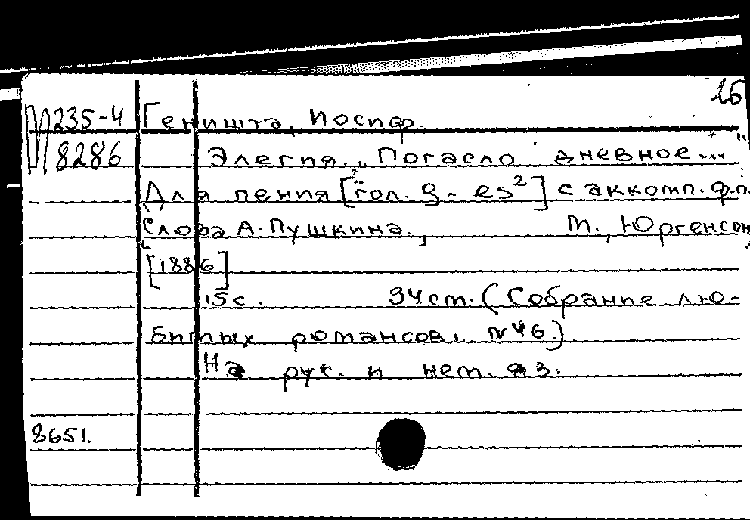 16
М 235-4 Геништа, Иосиф.
8286 Элегия. „Погасло дневное..."
Для пения [гол. g - es²] с аккомп. ф.п.
Слова А. Пушкина., М., Юргенсон,
[1886]
15 с. 34 см. (Собрание лю-
бимых романсов. №46.)
На рус. и нем. яз.
8651.